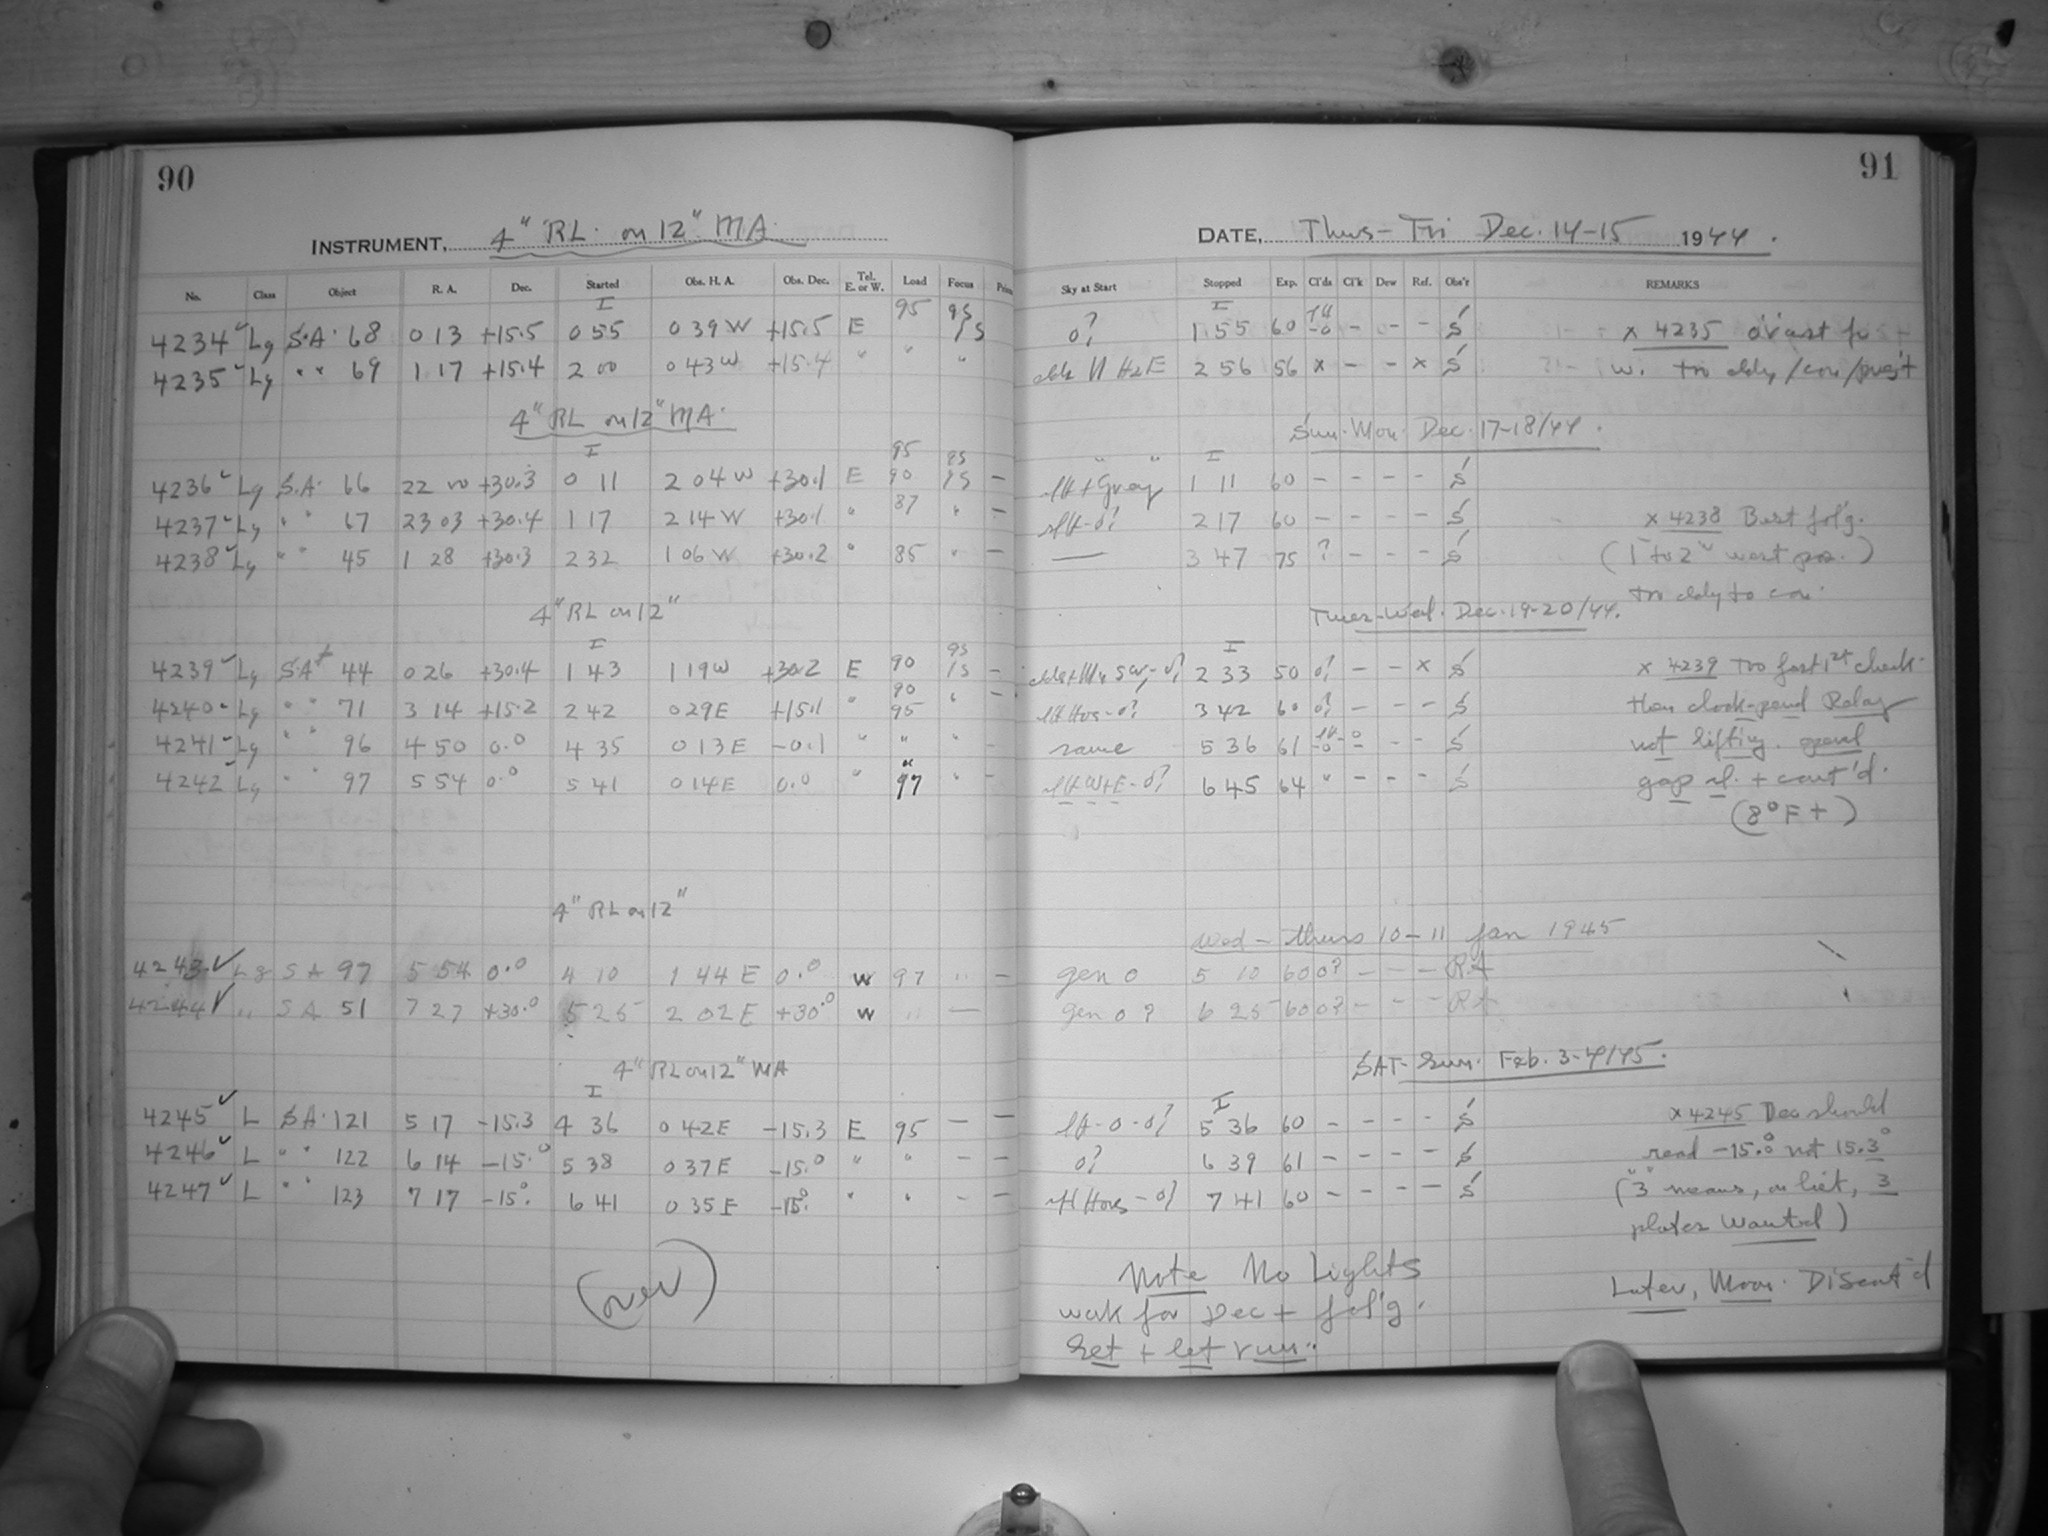 90
INSTRUMENT, 4" RL. on 12" MA.
No. Class Object R. A. Dec. Started Obs. H. A. Obs. Dec. Tel. E. or W. Load Focus
I 95 95
4234 Lg S.A. 68 0 13 +15.5 0 55 0 39 W +15.5 E 15
4235 Lg " " 69 1 17 +15.4 2 00 0 43 W +15.4 " " "
4" RL on 12" MA.
I 95 95
4236 Lg S.A. 66 22 00 +30.3 0 11 2 04 W +30.1 E 90 15 –
4237 Lg " " 67 23 03 +30.4 1 17 2 14 W +30.1 " 87 " –
4238 Lg " " 45 1 28 +30.3 2 32 1 06 W +30.2 " 85 " –
4" RL on 12"
I 95
4239 Lg S.A. 44 0 26 +30.4 1 43 1 19 W +30.2 E 90 15 –
4240 Lg " " 71 3 14 +15.2 2 42 0 29 E +15.1 " 90 95 " –
4241 Lg " " 96 4 50 0.0 4 35 0 13 E –0.1 " " " –
4242 Lg " " 97 5 54 0.0 5 41 0 14 E 0.0 " " 97 " –
4" RL on 12"
4243 Lg S A 97 5 54 0.0 4 10 1 44 E 0.0 W 97 " –
4244 " S A 51 7 27 +30.0 5 25 2 02 E +30.0 W " —
4" RL on 12" MA
I
4245 L S.A. 121 5 17 –15.3 4 36 0 42 E –15.3 E 95 – –
4246 L " " 122 6 14 –15.0 5 38 0 37 E –15.0 " " – –
4247 L " " 123 7 17 –15.0 6 41 0 35 E –15.0 " " – –
(over)
91
DATE, Thurs – Fri Dec. 14–15 1944.
Sky at Start Stopped Exp. Cl'ds Cl'k Dew Ref. Obs'r REMARKS
I
0? 1 55 60 – – – S x 4235
2 56 56 x – – x S w.
Sun. Mon. Dec. 17–18/44.
" " I
slt + Gray 1 11 60 – – – – S
slt–0? 2 17 60 – – – – S x 4238 Best fol'g.
— 3 47 75 ? – – – S (1 to 2" west pos.)
Tues–Wed. Dec. 19–20/44.
I
2 33 50 0? – – x S x 4239 too fast 1st check
slt Hos–0? 3 42 60 0? – – – S then clock-pend Relay
same 5 36 61 – – S not lifting. pend
slt W+E–0? 6 45 64 " – – – S gap + cont'd.
(8°F +)
Wed – Thurs 10–11 Jan 1945
gen 0 5 10 60 0? – – – RA
gen 0? 6 25 60 0? – – – RA
SAT–Sun. Feb. 3–4/45.
I
slt–0–0? 5 36 60 – – – – S x 4245 Dec should
0? 6 39 61 – – – – S read –15.0° not 15.3°
7 41 60 – – – – S ("3" means, on list, 3
plates Wanted)
Note No Lights
work for Dec + fol'g.
Set + let run.
Later, Moon. Discont'd